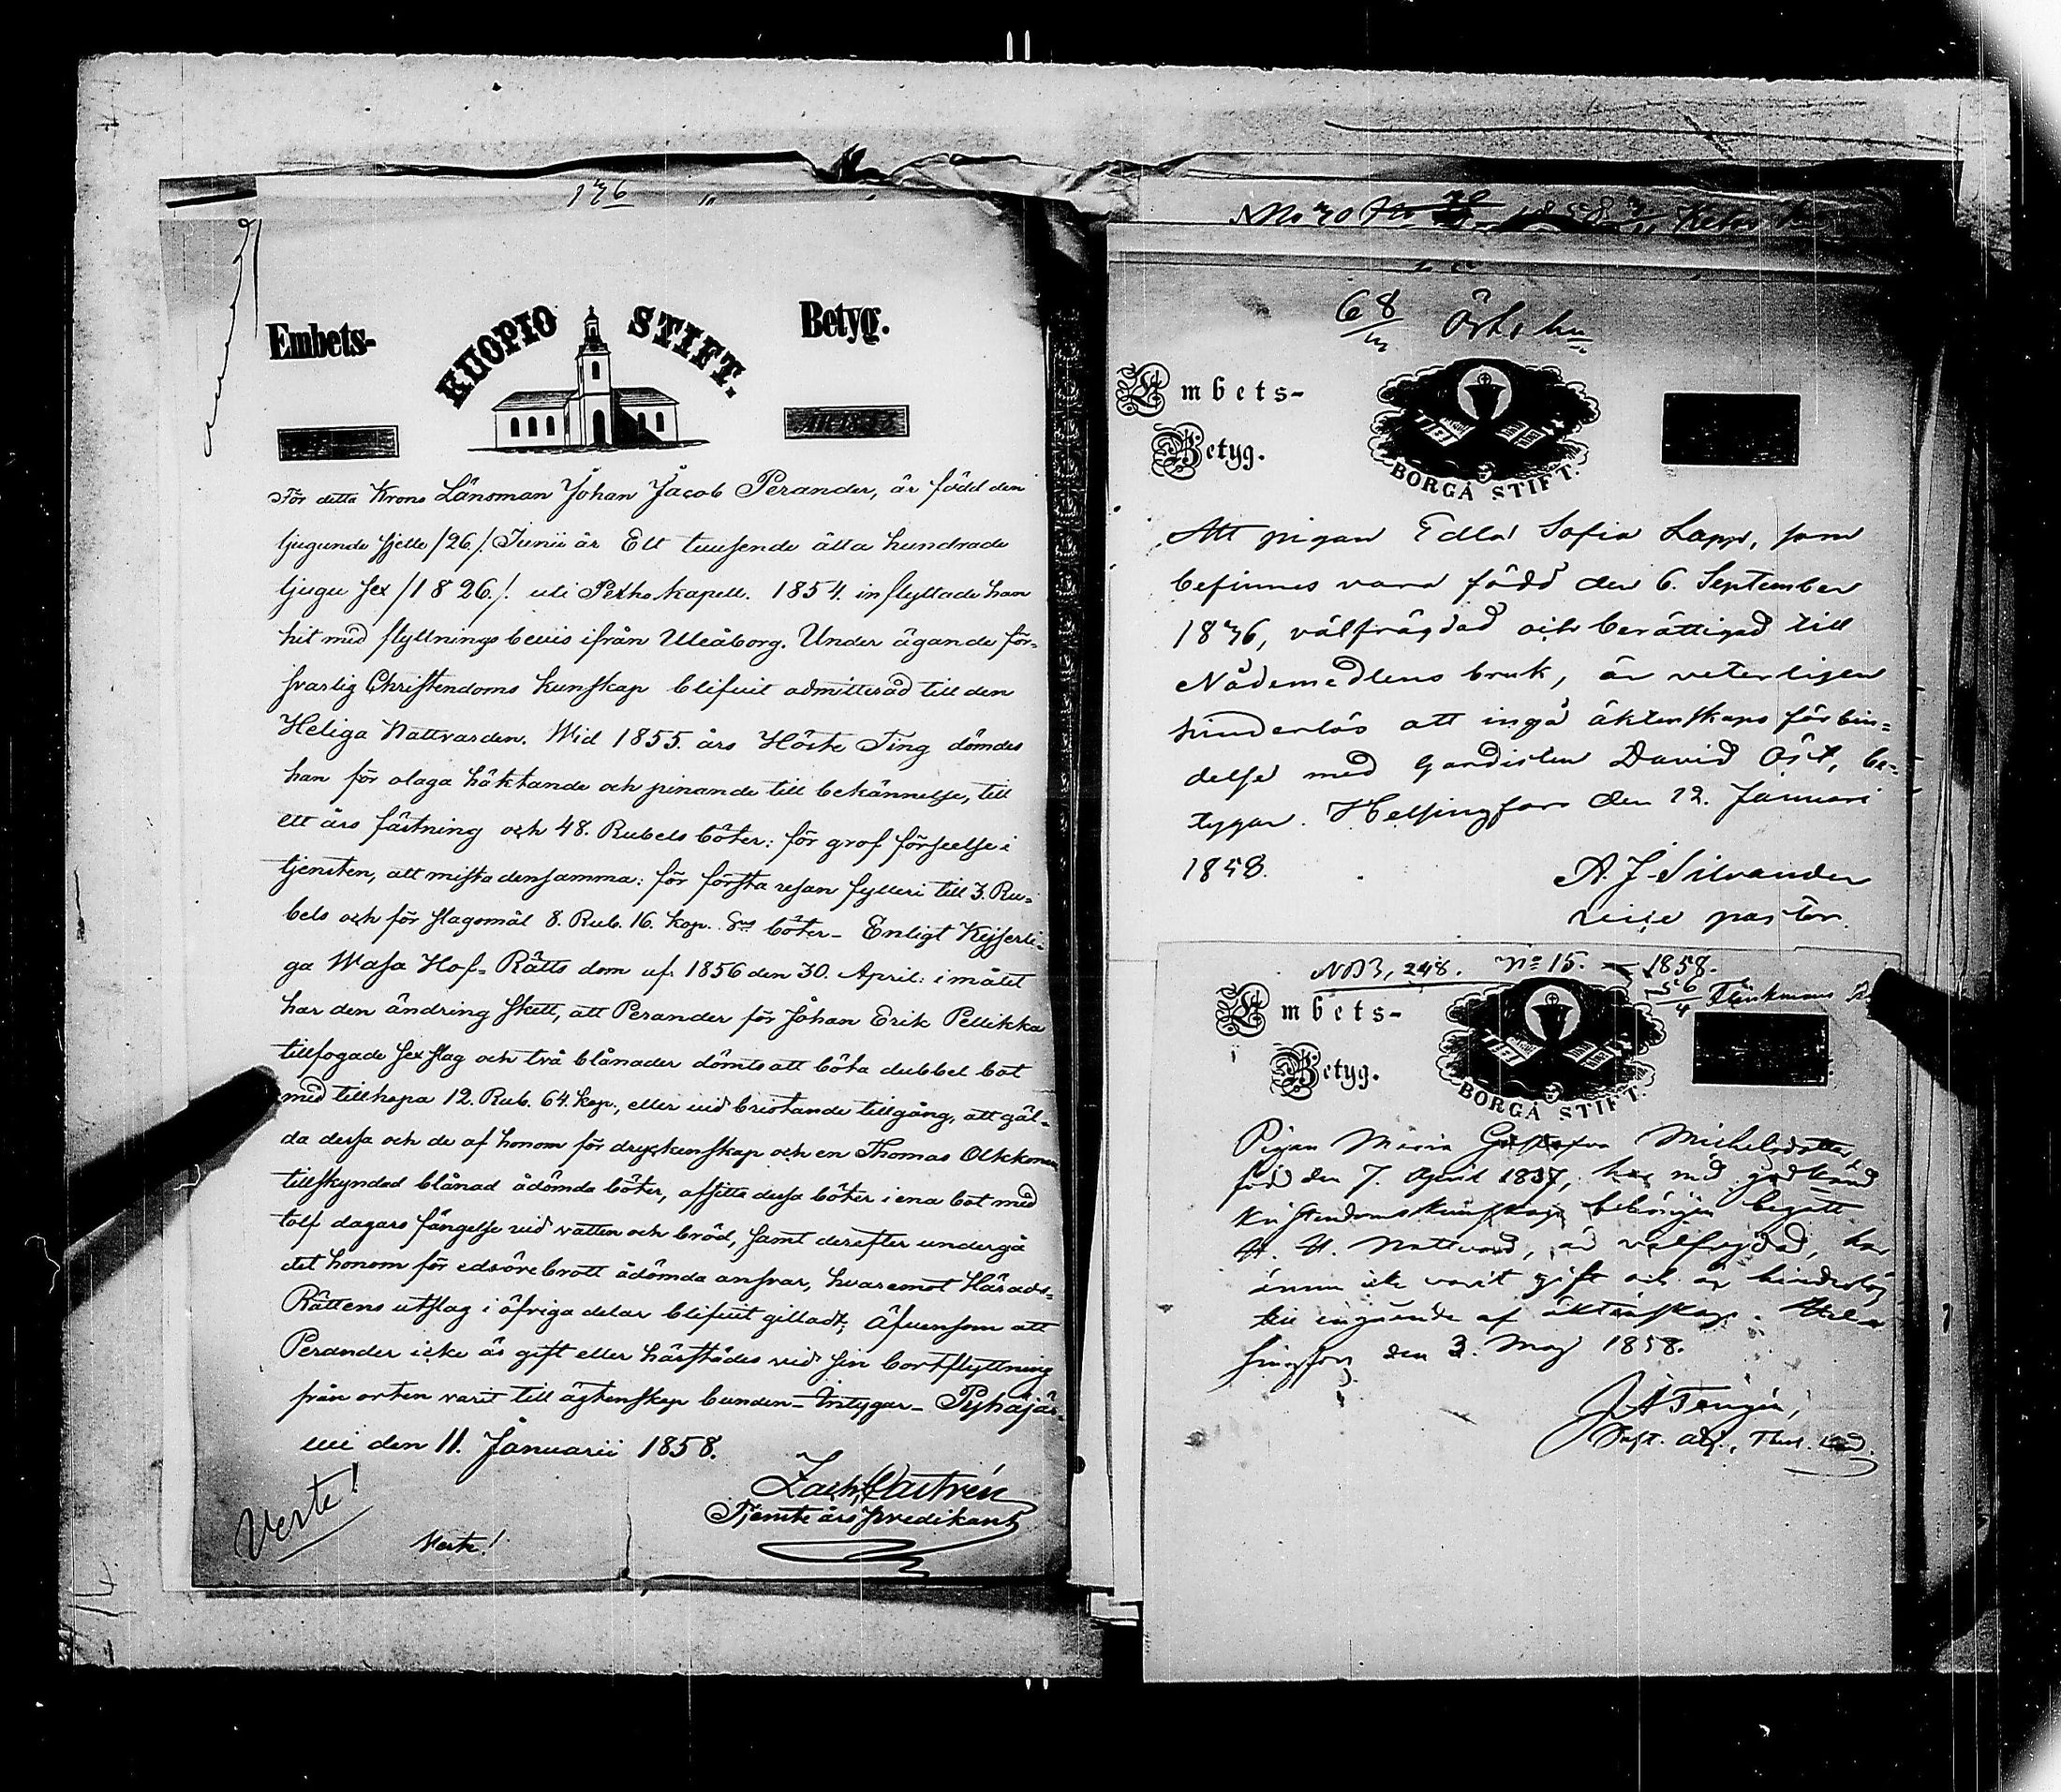 176
Embets-
KUOPIO STIFT.
Betyg.
För detta Krono Länsman Johan Jacob Perander, är född den
tjugunde sjette /26./ Junii år Ett tuusende åtta hundrade
tjugu sex /1826./ uti Perho kapell. 1854. inflyttade han
hit med flyttnings beviis ifrån Uleåborg. Under ägande för-
svarlig Christendoms kunskap blifvit admitterad till den
Heliga Nattvarden. Wid 1855. års Höste Ting dömdes
han för olaga häktande och pinande till bekännelse, till
ett års fästning och 48. Rubels böter: för grof förseelse i
tjensten, att mista densamma: för första resan fylleri till 3. Ru-
bels och för slagsmål 8. Rub. 16. kop. S:rs böter - Enligt Kejserli-
ga Wasa Hof-Rätts dom af 1856 den 30. April: i målet
har den ändring skett, att Perander för Johan Erik Pellikka
tillfogade sex slag och två blånader dömts att böta dubbel bot
med tillhopa 12. Rub. 64. kop., eller vid bristande tillgång, att gäl-
da dessa och de af honom för dryckenskap och en Thomas Olkkonen
tillskyndad blånad ådömda böter, afsitta dessa böter i ena bot med
tolf dagars fängelse vid vatten och bröd, samt derefter undergå
det honom för edsörebrott ådömda ansvar, hvaremot Härads-
Rättens utslag i öfriga delar blifvit gilladt; Äfvensom att
Perander icke är gift eller härstädes vid sin bortflyttning
från orten varit till ägtenskap bunden - Intygar - Pyhäjär-
vi den 11. Januarii 1858.
Zach. Castrén
Tjenste års predikant
Verte!
Vert!
No 70
68
Embets-
Betyg.
BORGÅ STIFT.
Att pigan Edla Sofia Lapp, som
befinnes vara född den 6. September
1836, välfrägdad och berättigad till
Nådemedlens bruk, är veterligen
hinderlös att ingå äktenskaps förbin-
delse med Gardisten David Öst, be-
tygar. Helsingfors den 12. Januari
1858.
A. J. Silvander
vice pastor.
NB3, 248. No 15. - 1858.
56
4
Embets-
Betyg.
BORGÅ STIFT.
Pigan Maria Gustafva Michelsdotter,
född den 7. April 1837, har med godkänd
kristendomskunskap behörigen begått
H. H. Nattvard, är välfrejdad, har
ännu icke varit gift och är hinderlös
till ingående af äktenskap. Hel-
singfors den 3. Maj 1858.